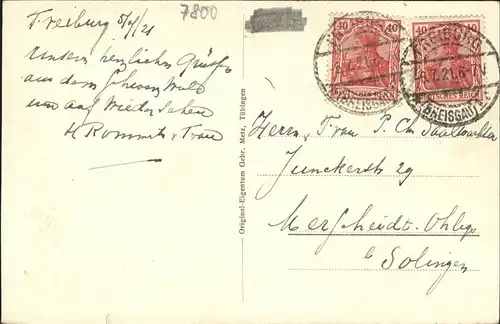 7800
Freiburg 5/7/21
Unsern herzlichen Grüsse
aus dem Schwarzwald
und auf Wiedersehen
H Rommets u Frau
Original-Eigentum Gebr. Metz, Tübingen
40 40
40 40
FREIBURG
7.21.6
BREISGAU
Herrn u Frau P. C.
Junckerstr 29
Merscheidt-Ohligs
b Solingen